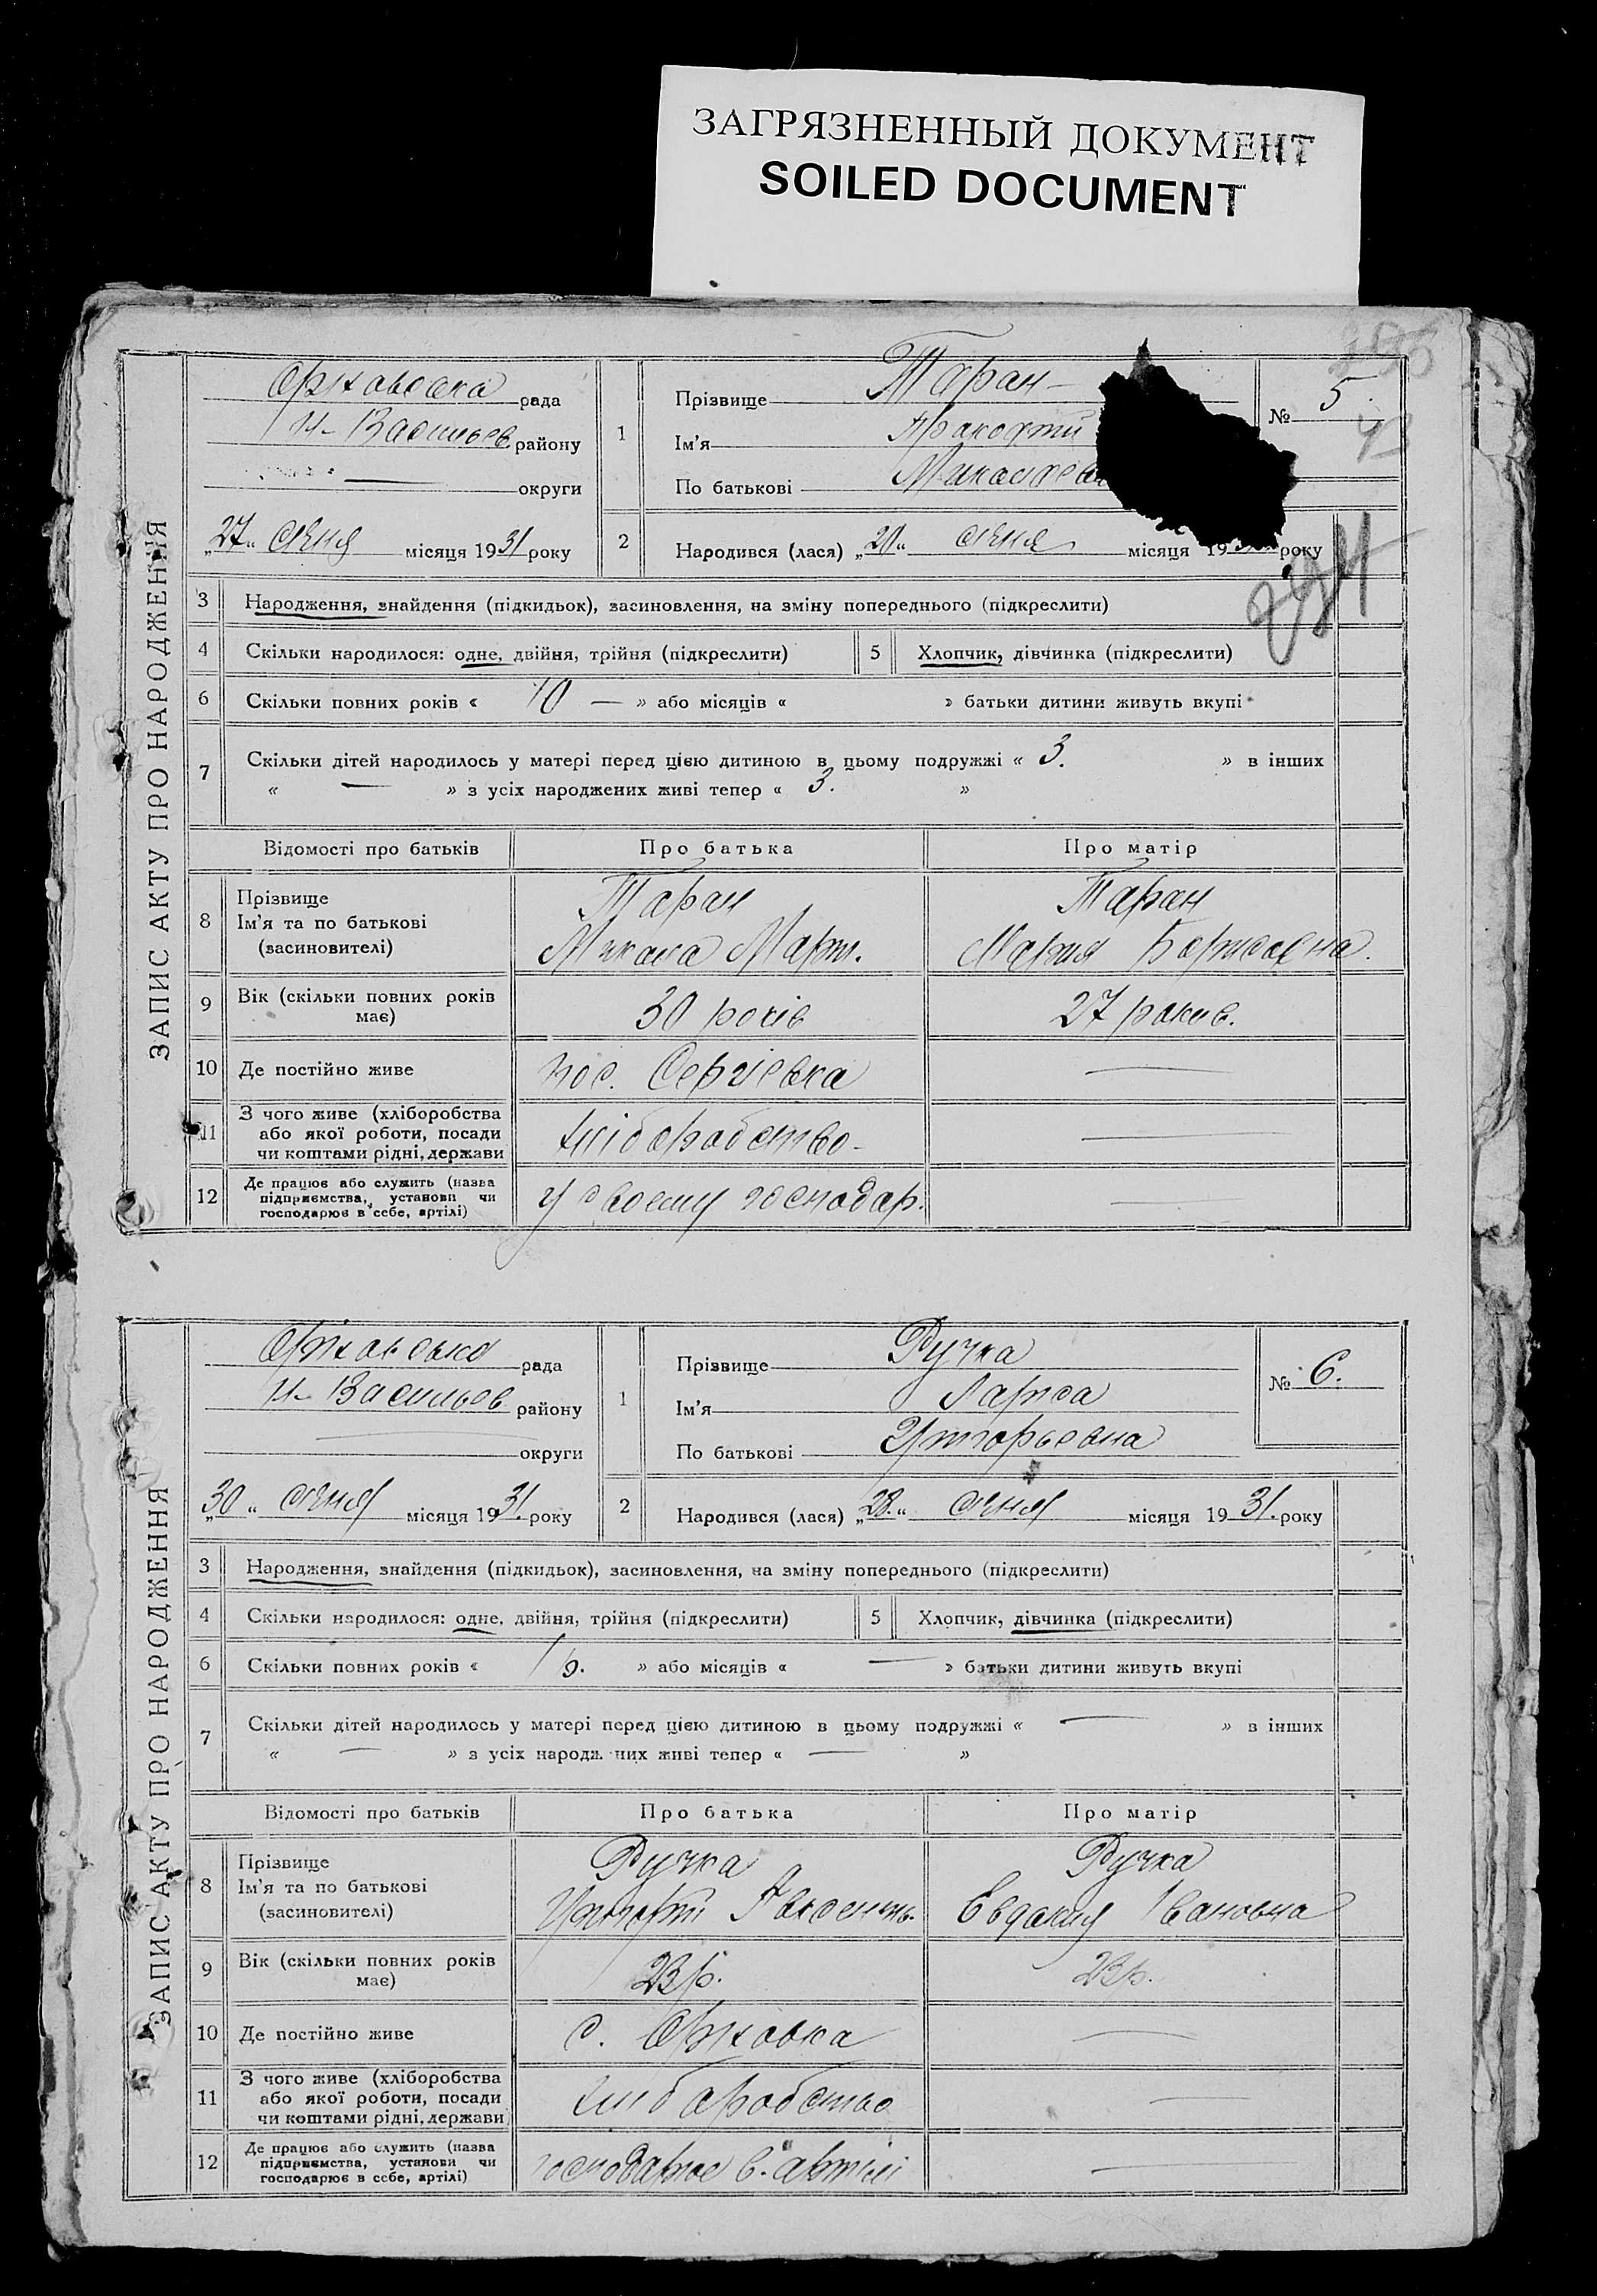 ЗАГРЯЗНЕННЫЙ ДОКУМЕНТ
SOILED DOCUMENT
ЗАПИС АКТУ ПРО НАРОДЖЕННЯ
рада
Н-Васильев. району
округи
„27“ січня місяця 1931 року
1
Прізвище Таран
Ім'я
По батькові
№ 5
2
Народився (лася) „20“ січня місяця 19 року
3 Народження, знайдення (підкидьок), засиновлення, на зміну попереднього (підкреслити)
4 Скільки народилося: одне, двійня, трійня (підкреслити)
5 Хлопчик, дівчинка (підкреслити)
6 Скільки повних років « 10 — » або місяців « » батьки дитини живуть вкупі
7 Скільки дітей народилось у матері перед цією дитиною в цьому подружжі « 3. » в інших
« — » з усіх народжених живі тепер « 3. »
Відомості про батьків Про батька Про матір
8 Прізвище
Ім'я та по батькові
(засиновителі)
Таран
Микола Март.
Таран
Мария Борисовна.
9 Вік (скільки повних років
має)
30 років
27 років.
10 Де постійно живе
пос. Сергієвка
—
11 З чого живе (хліборобства
або якої роботи, посади
чи коштами рідні, держави
хліборобство
—
12 Де працює або служить (назва
підприємства, установи чи
господарює в себе, артілі)
у своему господар.
—
ЗАПИС АКТУ ПРО НАРОДЖЕННЯ
рада
Н-Васильев. району
— округи
„30“ січня місяця 1931. року
1
Прізвище Ручка
Ім'я Лариса
По батькові Григорьевна
№ 6.
2
Народився (лася) „28.“ січня місяця 1931. року
3 Народження, знайдення (підкидьок), засиновлення, на зміну попереднього (підкреслити)
4 Скільки народилося: одне, двійня, трійня (підкреслити)
5 Хлопчик, дівчинка (підкреслити)
6 Скільки повних років « 1 р. » або місяців « — » батьки дитини живуть вкупі
7 Скільки дітей народилось у матері перед цією дитиною в цьому подружжі « — » в інших
« — » з усіх народж них живі тепер « — »
Відомості про батьків Про батька Про матір
8 Прізвище
Ім'я та по батькові
(засиновителі)
Ручка
Григорій
Ручка
Евдокия Івановна
9 Вік (скільки повних років
має)
23 р.
23 р.
10 Де постійно живе
с.
—
11 З чого живе (хліборобства
або якої роботи, посади
чи коштами рідні, держави
хліборобство
—
12 Де працює або служить (назва
підприємства, установи чи
господарює в себе, артілі)
господарює в артілі
—